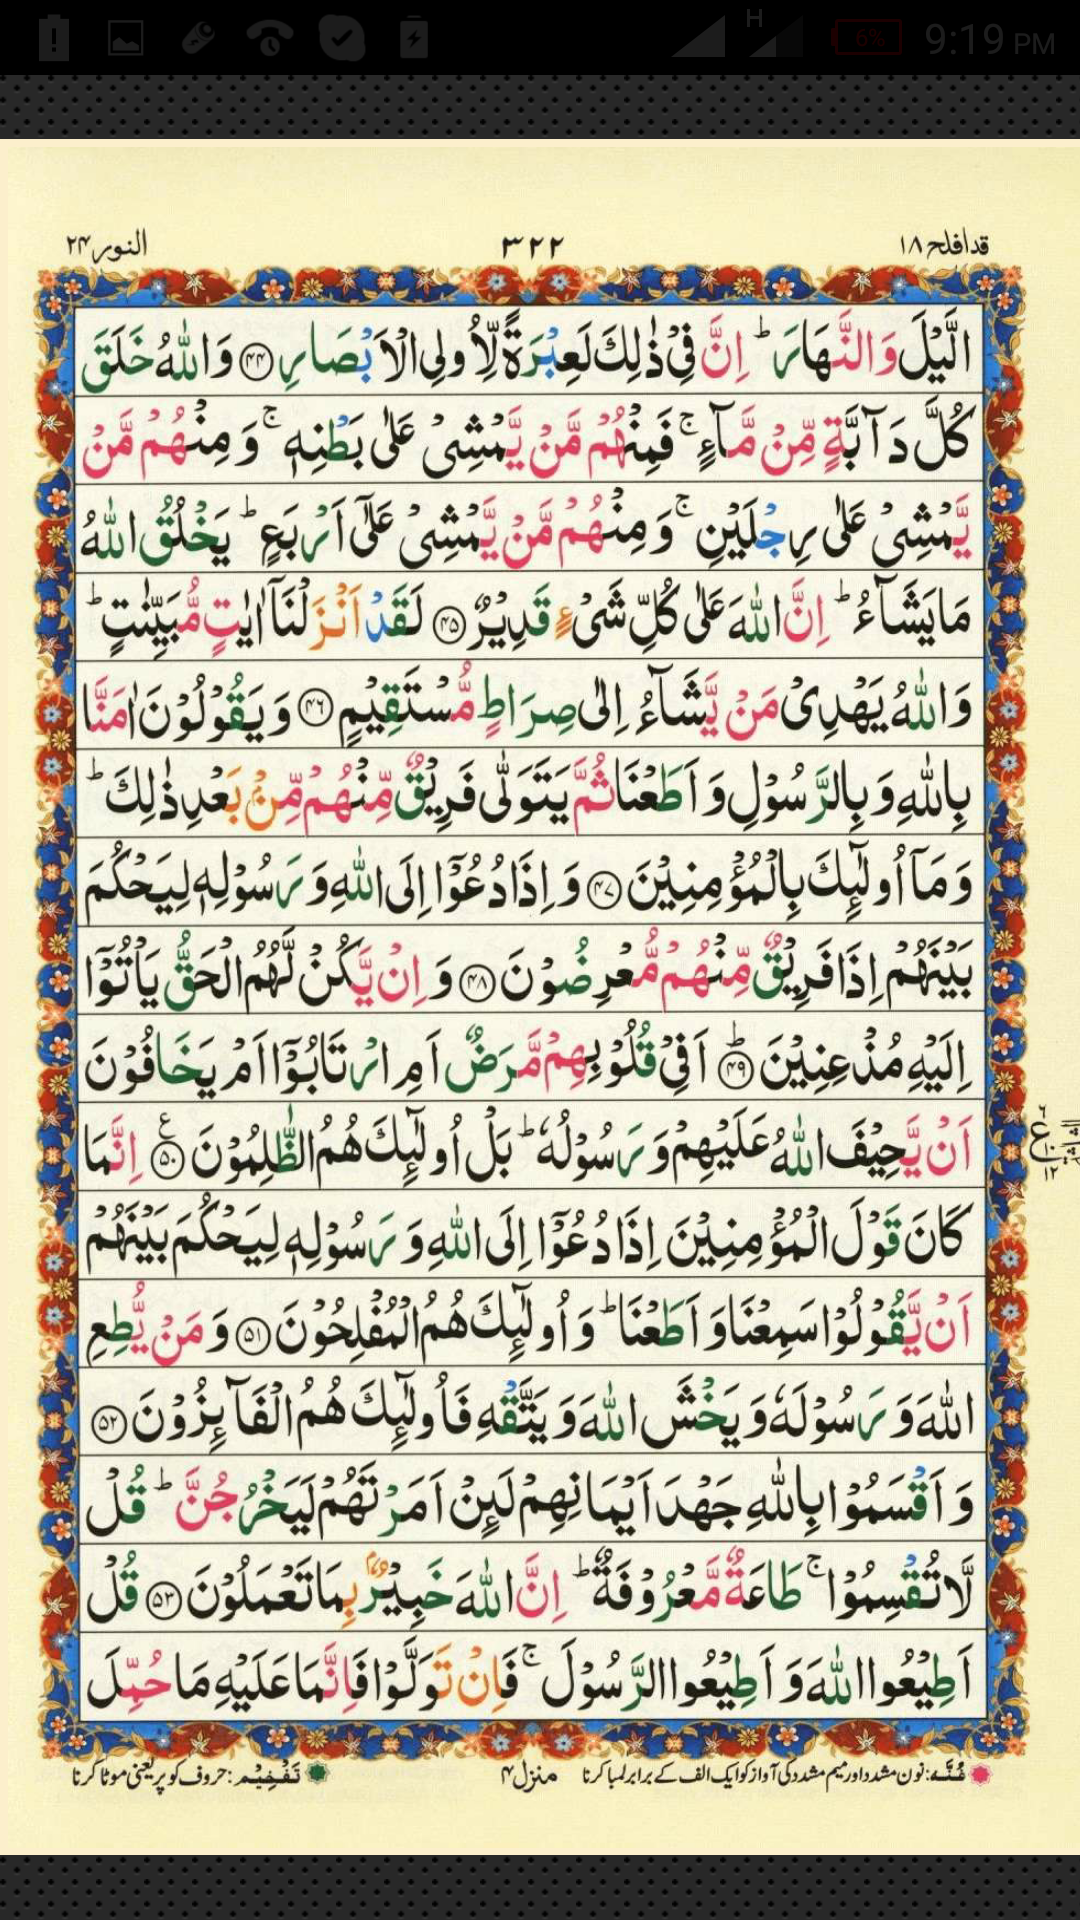 H
6%
9:19 PM
قد افلح ۱۸
۳۲۲
النور ۲۴
الَّيْلَ وَالنَّهَارَ ؕ اِنَّ فِيْ ذٰلِكَ لَعِبْرَةً لِّاُولِي الْاَبْصَارِ ۴۴ وَاللّٰهُ خَلَقَ
كُلَّ دَآبَّةٍ مِّنْ مَّآءٍ ۚ فَمِنْهُمْ مَّنْ يَّمْشِيْ عَلٰى بَطْنِهٖ ۚ وَمِنْهُمْ مَّنْ
يَّمْشِيْ عَلٰى رِجْلَيْنِ ۚ وَمِنْهُمْ مَّنْ يَّمْشِيْ عَلٰٓى اَرْبَعٍ ؕ يَخْلُقُ اللّٰهُ
مَا يَشَآءُ ؕ اِنَّ اللّٰهَ عَلٰى كُلِّ شَيْءٍ قَدِيْرٌ ۴۵ لَقَدْ اَنْزَلْنَآ اٰيٰتٍ مُّبَيِّنٰتٍ ؕ
وَاللّٰهُ يَهْدِيْ مَنْ يَّشَآءُ اِلٰى صِرَاطٍ مُّسْتَقِيْمٍ ۴۶ وَيَقُوْلُوْنَ اٰمَنَّا
بِاللّٰهِ وَبِالرَّسُوْلِ وَاَطَعْنَا ثُمَّ يَتَوَلّٰى فَرِيْقٌ مِّنْهُمْ مِّنْۢ بَعْدِ ذٰلِكَ ؕ
وَمَآ اُولٰٓئِكَ بِالْمُؤْمِنِيْنَ ۴۷ وَاِذَا دُعُوْٓا اِلَى اللّٰهِ وَرَسُوْلِهٖ لِيَحْكُمَ
بَيْنَهُمْ اِذَا فَرِيْقٌ مِّنْهُمْ مُّعْرِضُوْنَ ۴۸ وَاِنْ يَّكُنْ لَّهُمُ الْحَقُّ يَاْتُوْٓا
اِلَيْهِ مُذْعِنِيْنَ ؕ ۴۹ اَفِيْ قُلُوْبِهِمْ مَّرَضٌ اَمِ ارْتَابُوْٓا اَمْ يَخَافُوْنَ
اَنْ يَّحِيْفَ اللّٰهُ عَلَيْهِمْ وَرَسُوْلُهٗ ؕ بَلْ اُولٰٓئِكَ هُمُ الظّٰلِمُوْنَ ۵۰ ع اِنَّمَا
كَانَ قَوْلَ الْمُؤْمِنِيْنَ اِذَا دُعُوْٓا اِلَى اللّٰهِ وَرَسُوْلِهٖ لِيَحْكُمَ بَيْنَهُمْ
اَنْ يَّقُوْلُوْا سَمِعْنَا وَاَطَعْنَا ؕ وَاُولٰٓئِكَ هُمُ الْمُفْلِحُوْنَ ۵۱ وَمَنْ يُّطِعِ
اللّٰهَ وَرَسُوْلَهٗ وَيَخْشَ اللّٰهَ وَيَتَّقْهِ فَاُولٰٓئِكَ هُمُ الْفَآئِزُوْنَ ۵۲
وَاَقْسَمُوْا بِاللّٰهِ جَهْدَ اَيْمَانِهِمْ لَئِنْ اَمَرْتَهُمْ لَيَخْرُجُنَّ ؕ قُلْ
لَّا تُقْسِمُوْا ۚ طَاعَةٌ مَّعْرُوْفَةٌ ؕ اِنَّ اللّٰهَ خَبِيْرٌۢ بِمَا تَعْمَلُوْنَ ۵۳ قُلْ
اَطِيْعُوا اللّٰهَ وَاَطِيْعُوا الرَّسُوْلَ ۚ فَاِنْ تَوَلَّوْا فَاِنَّمَا عَلَيْهِ مَا حُمِّلَ
غُنَّه: نون مشدد اور میم مشدد کی آواز کو ایک الف کے برابر لمبا کرنا
منزل ۴
تَفْخِيْم: حروف کو پُر یعنی موٹا کرنا